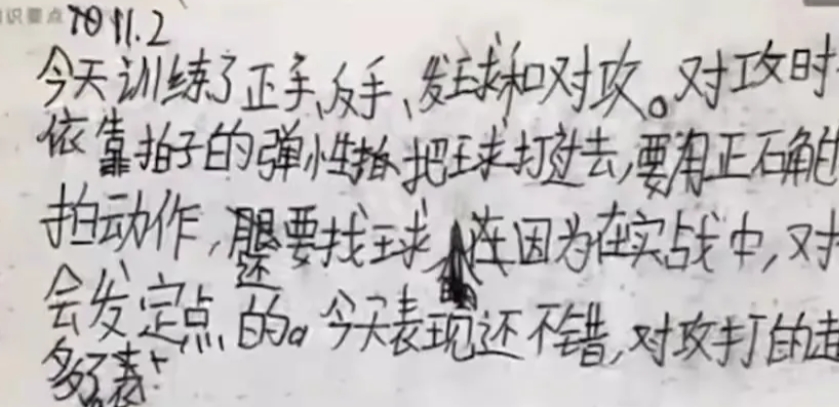 识要点
10 11.2
今天训练了正手、反手、发球和对攻。对攻时
依靠拍子的弹性 把球打过去,要用正确的
拍动作,腿要找球 在因为在实战中,对
会发定点 的。今天表现还不错,对攻打的
多了